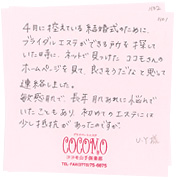 4月に控えている結婚式のために、
ブライダルエステができるサロンを探して
いた時に、ネットで見つけた、ココモさんの
ホームページを見て、良さそうだなと思って
連絡しました。
敏感肌で、長年肌あれに悩んで
いたこともあり、初めてのエステには
少し抵抗があったのですが、
COCOMO
ココモ山子田事業
TEL.FAX(0775)75-6875
U.Y様